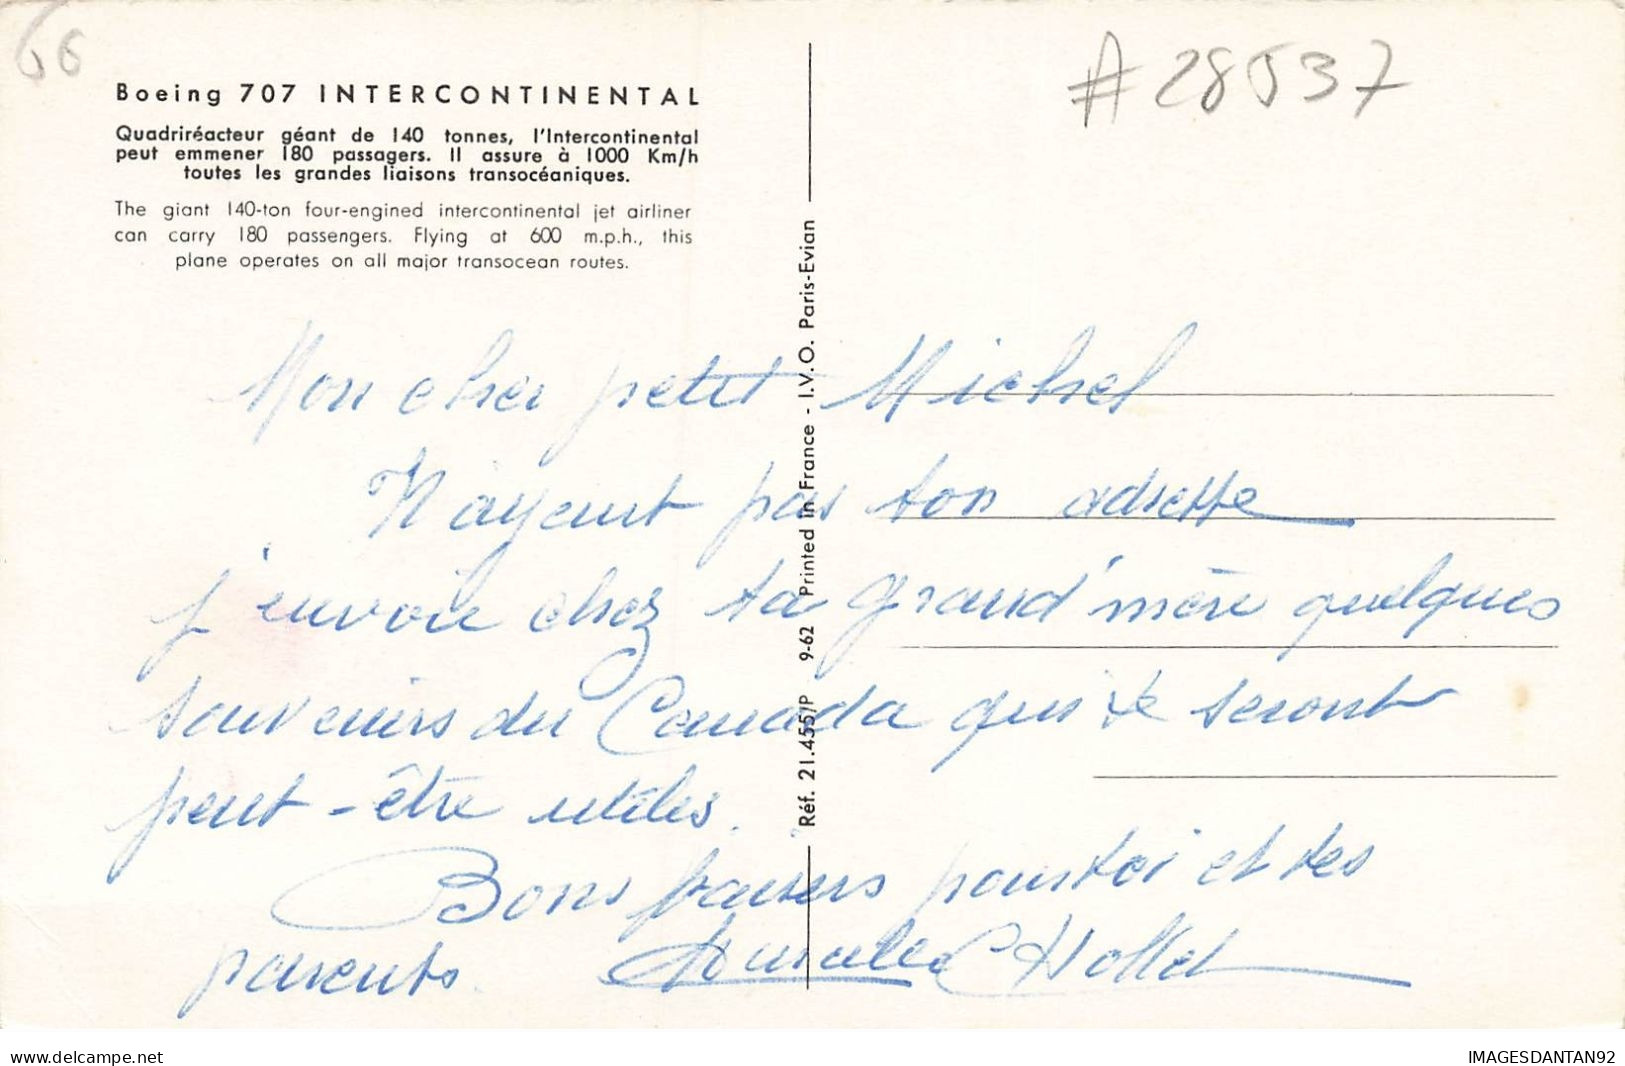 66
# 28537
Boeing 707 INTERCONTINENTAL
Quadriréacteur géant de 140 tonnes, l'Intercontinental
peut emmener 180 passagers. Il assure à 1000 Km/h
toutes les grandes liaisons transocéaniques.
The giant 140-ton four-engined intercontinental jet airliner
can carry 180 passengers. Flying at 600 m.p.h., this
plane operates on all major transocean routes.
Réf. 21.455/P 9-62 Printed in France - I.V.O. Paris-Evian
Mon cher petit Michel
N'ayant pas ton adresse
j'envoie chez ta grand'mère quelques
souvenirs du Canada qui te seront
peut-être utiles.
Bons baisers pour toi et tes
parents.
delcampe.net
IMAGESDANTAN92